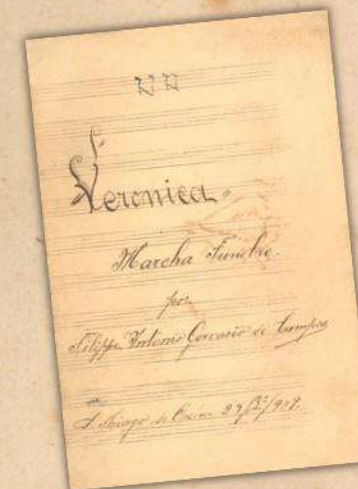 Veronica
Marcha Funebre.
por
Filippe Antonio Gervasio de Campos
S. Thiago de